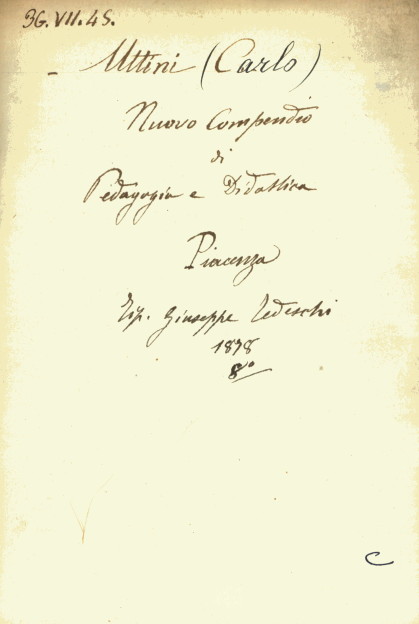 36.VII.45.
- Uttini (Carlo)
Nuovo Compendio
di
Pedagogia e Didattica
Piacenza
Tip. Giuseppe Tedeschi
1878
8º
C